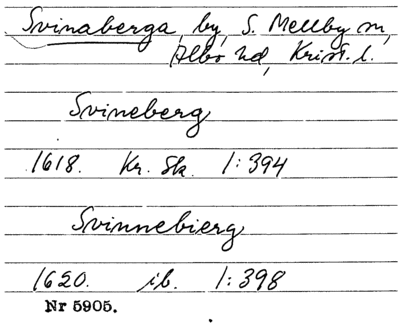 Svinaberga, by, S. Mellby sn,
Albo hd, Krist. l.
Svineberg
1618. Kr. Sk. 1:394
Svinnebierg
1620. ib. 1:398
Nr 5905.